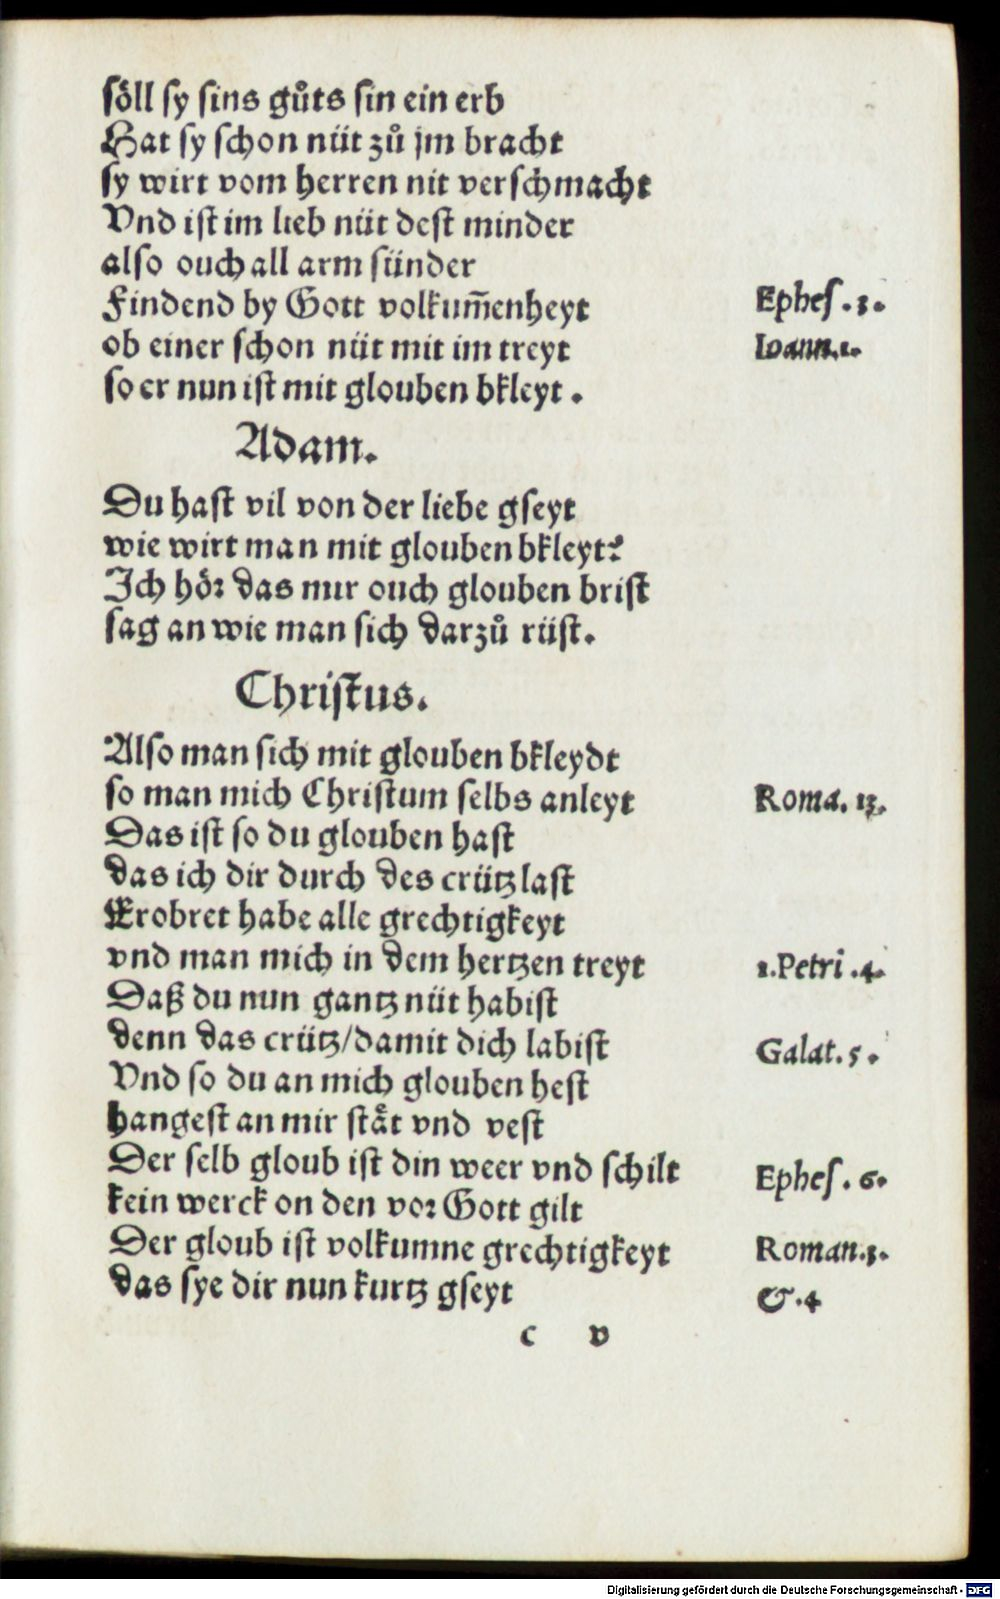 söll sy sins gůts sin ein erb
Hat sy schon nüt zů jm bracht
sy wirt vom herren nit verschmacht
Vnd ist im lieb nüt dest minder
also ouch all arm sünder
Findend by Gott volkum̃enheyt Ephes. 3.
ob einer schon nüt mit im treyt Ioann. 1.
so er nun ist mit glouben bkleyt.
Adam.
Du hast vil von der liebe gseyt
wie wirt man mit glouben bkleyt?
Ich hör das mir ouch glouben brist
sag an wie man sich darzů rüst.
Christus.
Also man sich mit glouben bkleydt
so man mich Christum selbs anleyt Roma. 13.
Das ist so du glouben hast
das ich dir durch des crütz last
Erobret habe alle grechtigkeyt
vnd man mich in dem hertzen treyt 1. Petri. 4.
Daß du nun gantz nüt habist
denn das crütz/damit dich labist Galat. 5.
Vnd so du an mich glouben hest
hangest an mir ståt vnd vest
Der selb gloub ist din weer vnd schilt Ephes. 6.
kein werck on den vor Gott gilt
Der gloub ist volkumne grechtigkeyt Roman. 3.
das sye dir nun kurtz gseyt &. 4
c v
Digitalisierung gefördert durch die Deutsche Forschungsgemeinschaft - DFG